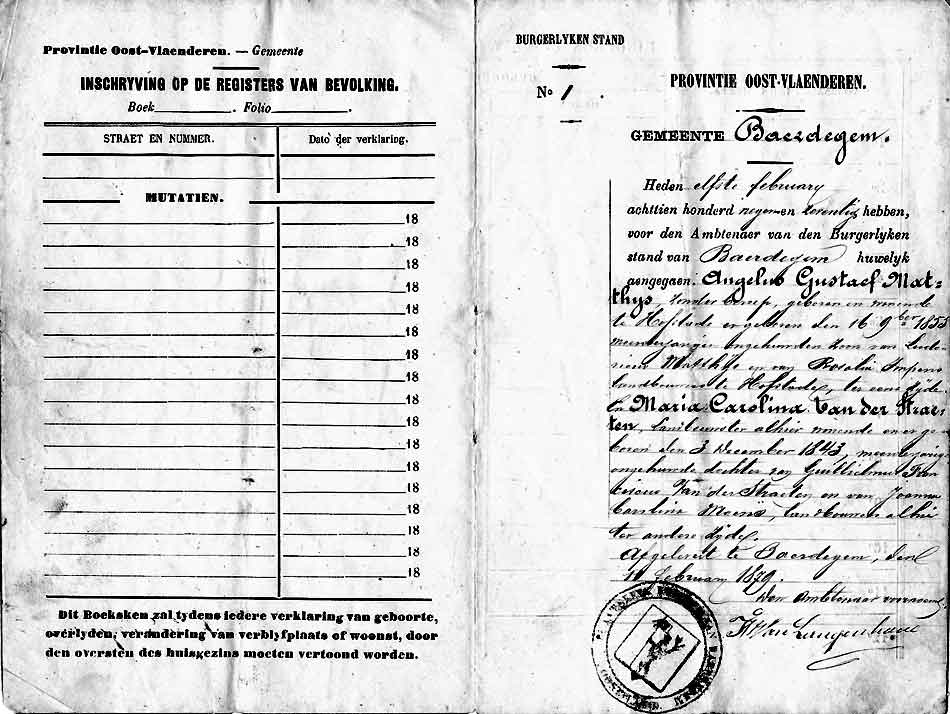 Provintie Oost-Vlaenderen. — Gemeente
INSCHRYVING OP DE REGISTERS VAN BEVOLKING.
Boek________. Folio________.
STRAET EN NUMMER. Dato der verklaring.
MUTATIEN.
18
18
18
18
18
18
18
18
18
18
18
18
18
18
18
18
Dit Boeksken zal tydens iedere verklaring van geboorte,
overlyden, verandering van verblyfplaats of woonst, door
den oversten des huisgezins moeten vertoond worden.
BURGERLYKEN STAND
No 1.
PROVINTIE OOST-VLAENDEREN.
GEMEENTE Baerdegem.
Heden elfste february
achttien honderd negen en zeventig hebben,
voor den Ambtenaer van den Burgerlyken
stand van Baerdegem huwelyk
aengegaen. Angelus Gustaef Mat-
thys, zonder beroep, geboren en woonende
te Hofstade er geboren den 16 9ber
meerderjarigen ongehuwden zoon van
Matthys en van Rosalia
landbouwers te Hofstade, ter eene zyde
En Maria Carolina Van der Strae-
ten, landbouwster alhier woonende en er ge-
boren den 3 December 1843, meerderjarige
ongehuwde dochter van Guillielmus Fran
ciscus Van der Straeten en van Joanna
Carolina Moens, landbouwers alhier
ter andere zyde.
Afgeleverd te Baerdegem, den
11 February 1879.
Den Ambtenaer voornoemd